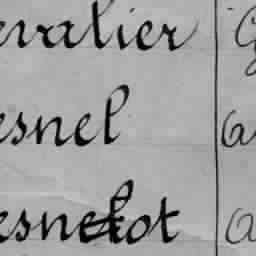 evalier
esnel
esnelot